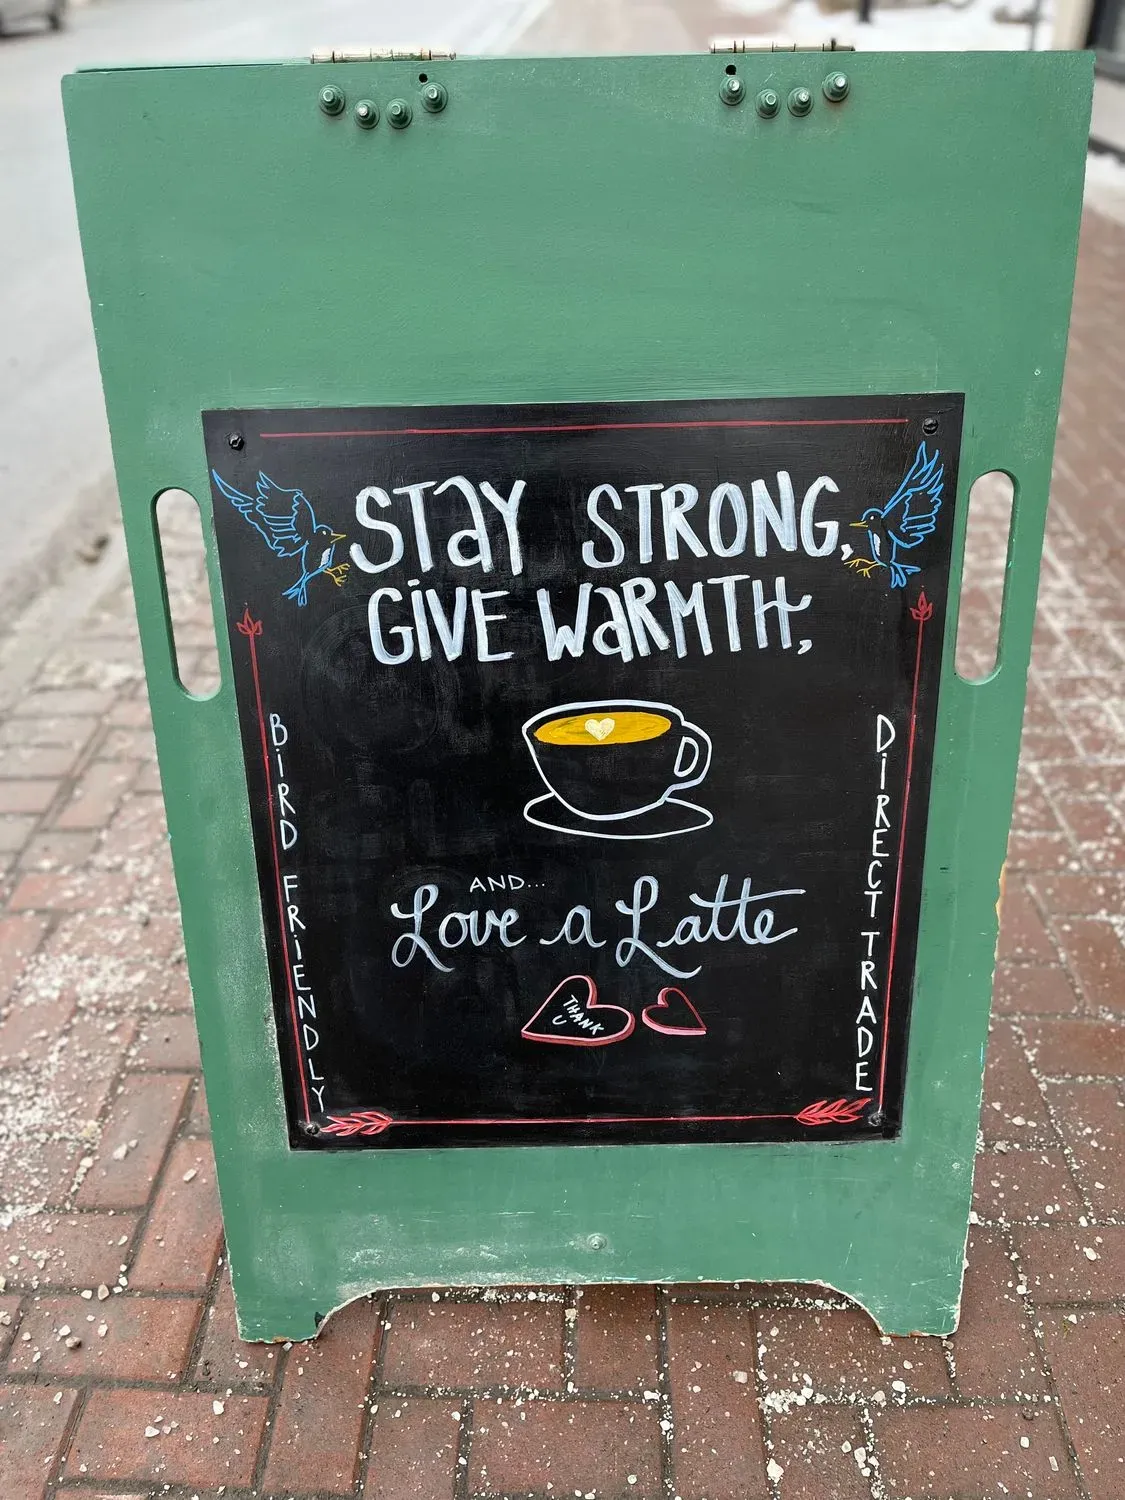 STAY STRONG,
GIVE WARMTH,
BIRD FRIENDLY
DIRECT TRADE
AND...
Love a Latte
THANK
U